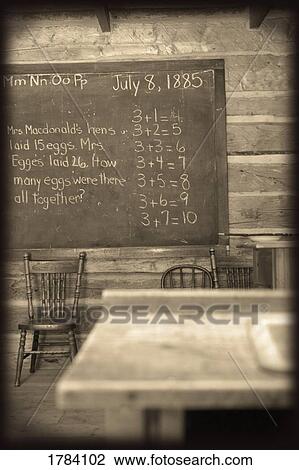 Mm Nn Oo Pp July 8, 1885
Mrs Macdonald's hens
laid 15 eggs. Mrs.
Egges' laid 26. How
many eggs were there
all together?
3+1=4
3+2=5
3+3=6
3+4=7
3+5=8
3+6=9
3+7=10
© Fotosearch
1784102 www.fotosearch.com